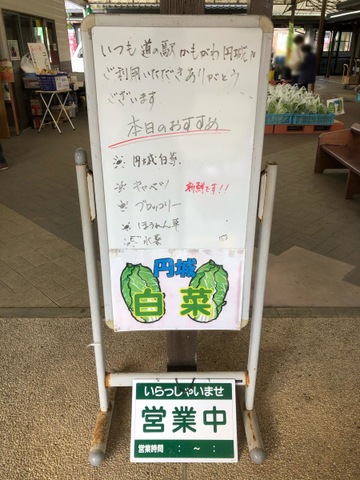 いつも 道の駅 かもがわ円城を
ご利用いただきありがとう
ございます
本日のおすすめ
円城白菜
キャベツ 新鮮です!!
ブロッコリー
ほうれん草
水菜
円城
白菜
いらっしゃいませ
営業中
営業時間 : ~ :